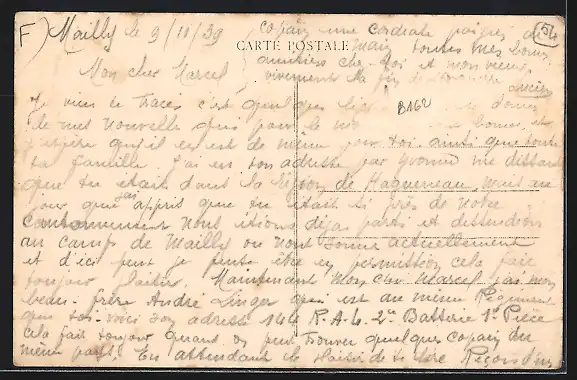 F) Mailly le 9/11/39
54
CARTE POSTALE
copain une cordiale poignée de
main toutes mes bonnes
amitiers chez toi et mon vieux
vivement la fin
Lucien
B162
Mon cher Marcel
Je viens te tracer c'est quelques
de mes nouvelle que pour le
j'espère qu'il en est de même pour toi ainsi que toute
ta famille j'ai eu ton adresse par Yvonne me disant
que tu était dans la région de Haguenau mais au
jour que j'ai appris que tu était si près de notre
cantonnement nous étions déjas parti et descendion
au camp de Mailly ou nous somme actuellement
et d'ici peut je pense être en permission cela fait
toujour plaisir. Maintenant mon cher Marcel j'ai mon
beau-frère André Linger qui est au même Régiment
que toi voici son adresse 144 R.A.L. 2e Batterie 1e Pièce
cela fait toujour quand on peut trouver quelque copain du
même pays. En attendant le plaisir de te lire Reçois d'un